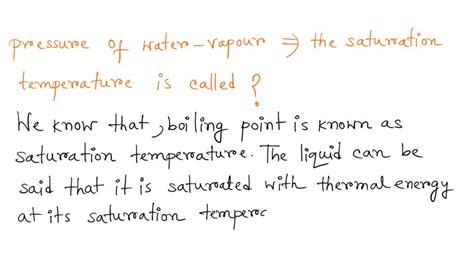 pressure of water-vapour ⇒ the saturation
temperature is called?
We know that, boiling point is known as
saturation temperature. The liquid can be
said that it is saturated with thermal energy
at its saturation temperc